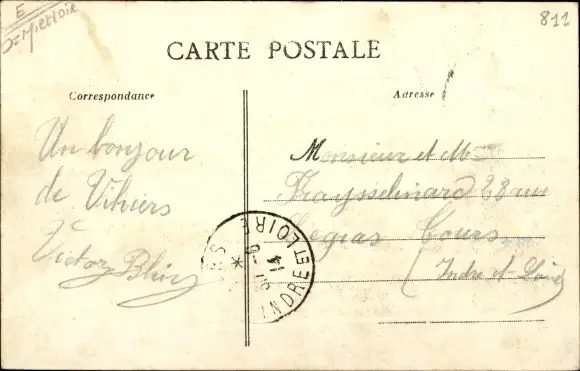 E
811
CARTE POSTALE
Correspondance
Adresse
Un bonjour
de Vihiers
Victor
Monsieur et Mme
28 rue
Legras Tours
(Indre et Loire)
INDRE ET LOIRE